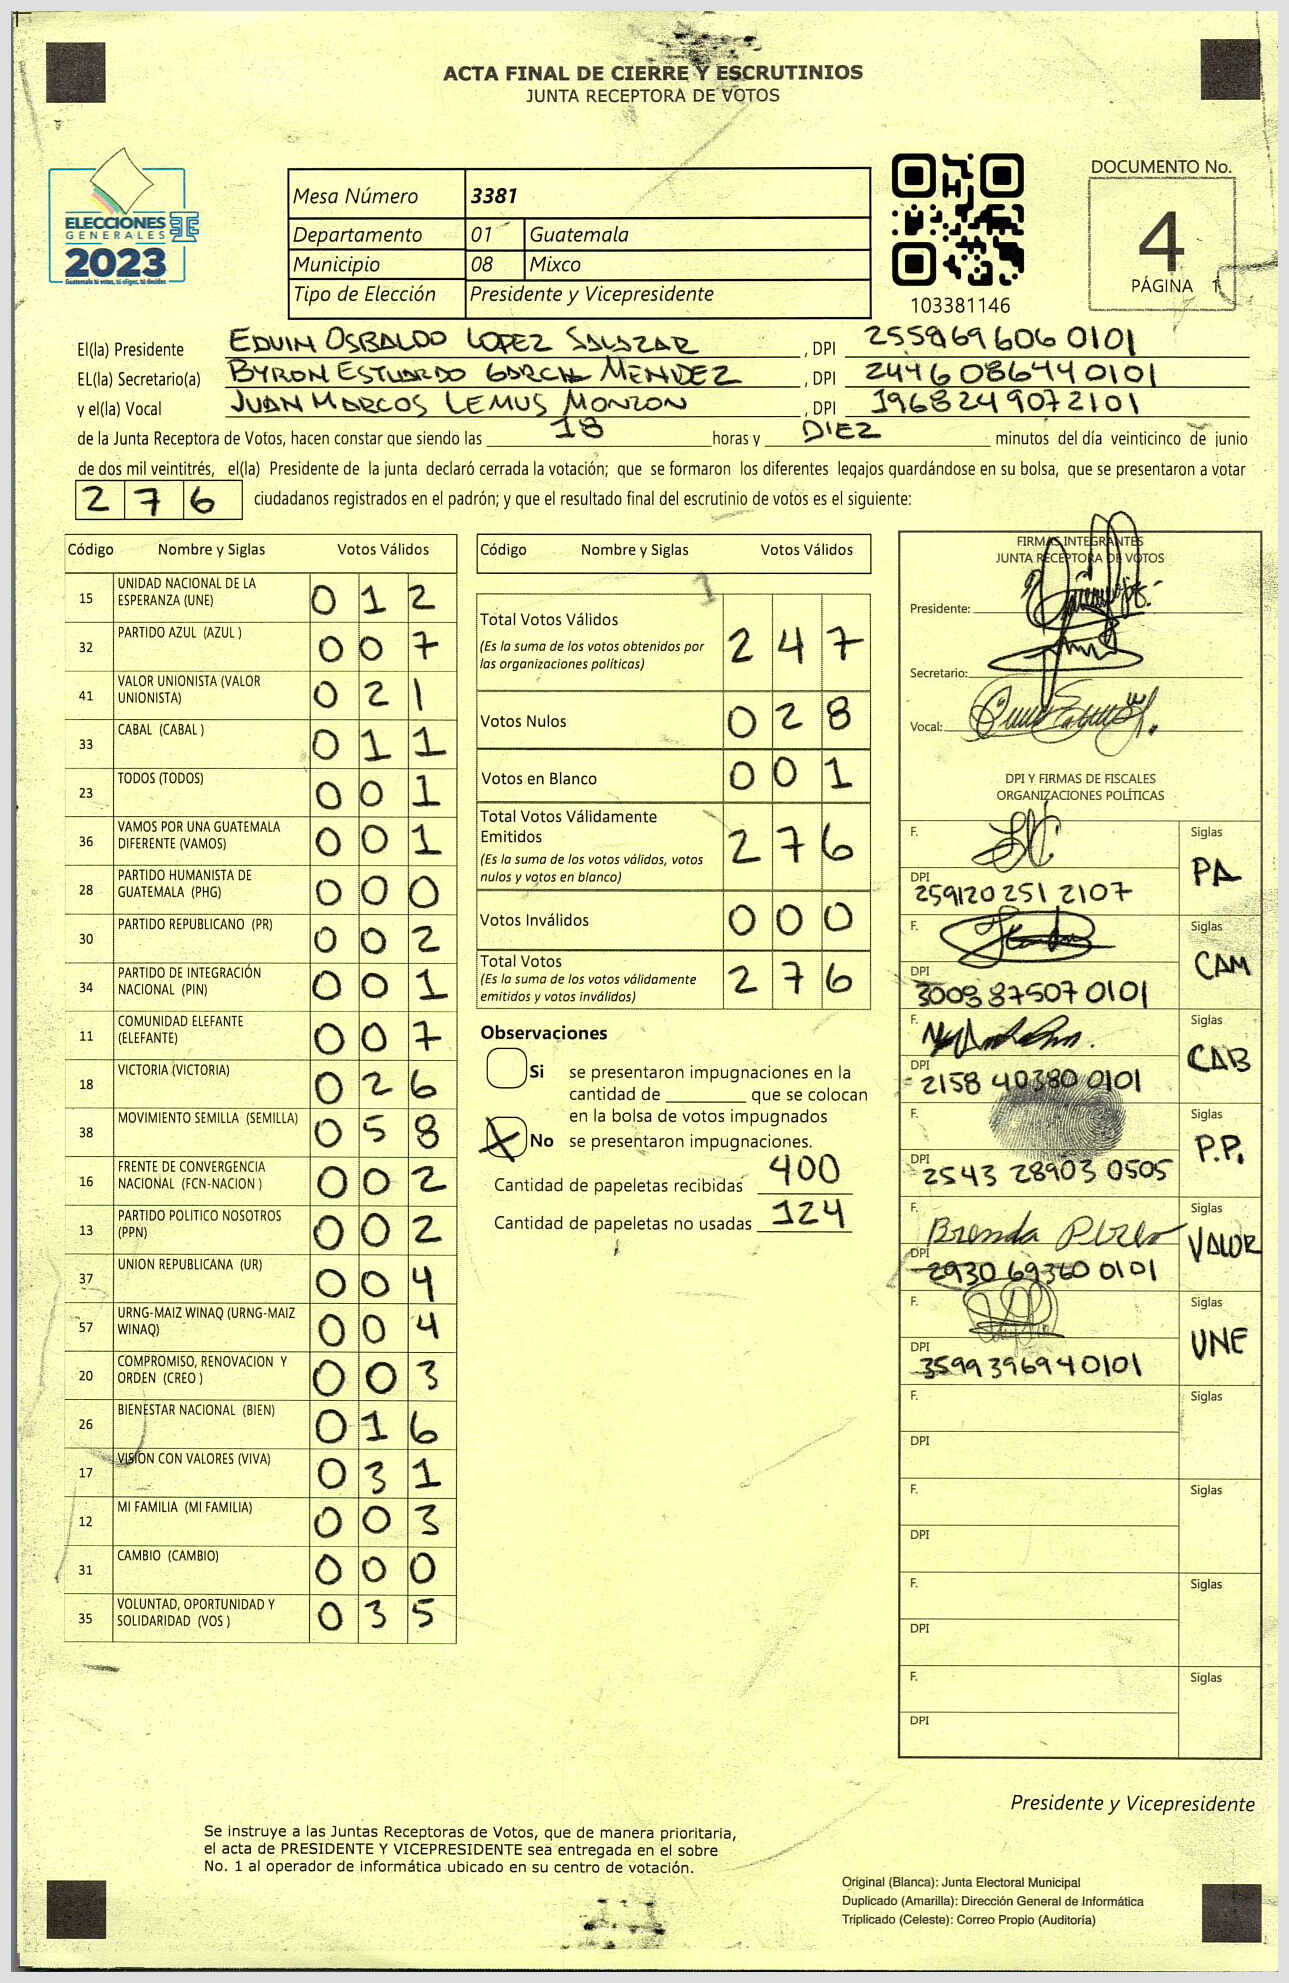 ACTA FINAL DE CIERRE Y ESCRUTINIOS
JUNTA RECEPTORA DE VOTOS
ELECCIONES
GENERALES
2023
Guatemala tú votas, tú eliges, tú decides
Mesa Número 3381
Departamento 01 Guatemala
Municipio 08 Mixco
Tipo de Elección Presidente y Vicepresidente
103381146
DOCUMENTO No.
4
PÁGINA 1
El(la) Presidente EDVIN OSBALDO LOPEZ SALAZAR , DPI 2558696060101
EL(la) Secretario(a) BYRON ESTUARDO GARCIA MENDEZ , DPI 2446086440101
y el(la) Vocal JUAN MARCOS LEMUS MONZON , DPI 1968249072101
de la Junta Receptora de Votos, hacen constar que siendo las 18 horas y DIEZ minutos del día veinticinco de junio
de dos mil veintitrés, el(la) Presidente de la junta declaró cerrada la votación; que se formaron los diferentes legajos guardándose en su bolsa, que se presentaron a votar
276 ciudadanos registrados en el padrón; y que el resultado final del escrutinio de votos es el siguiente:
Código Nombre y Siglas Votos Válidos
15 UNIDAD NACIONAL DE LA ESPERANZA (UNE) 012
32 PARTIDO AZUL (AZUL ) 007
41 VALOR UNIONISTA (VALOR UNIONISTA) 021
33 CABAL (CABAL ) 011
23 TODOS (TODOS) 001
36 VAMOS POR UNA GUATEMALA DIFERENTE (VAMOS) 001
28 PARTIDO HUMANISTA DE GUATEMALA (PHG) 000
30 PARTIDO REPUBLICANO (PR) 002
34 PARTIDO DE INTEGRACIÓN NACIONAL (PIN) 001
11 COMUNIDAD ELEFANTE (ELEFANTE) 007
18 VICTORIA (VICTORIA) 026
38 MOVIMIENTO SEMILLA (SEMILLA) 058
16 FRENTE DE CONVERGENCIA NACIONAL (FCN-NACION ) 002
13 PARTIDO POLITICO NOSOTROS (PPN) 002
37 UNION REPUBLICANA (UR) 004
57 URNG-MAIZ WINAQ (URNG-MAIZ WINAQ) 004
20 COMPROMISO, RENOVACION Y ORDEN (CREO ) 003
26 BIENESTAR NACIONAL (BIEN) 016
17 VISION CON VALORES (VIVA) 031
12 MI FAMILIA (MI FAMILIA) 003
31 CAMBIO (CAMBIO) 000
35 VOLUNTAD, OPORTUNIDAD Y SOLIDARIDAD (VOS ) 035
Código Nombre y Siglas Votos Válidos
Total Votos Válidos 247
(Es la suma de los votos obtenidos por
las organizaciones políticas)
Votos Nulos 028
Votos en Blanco 001
Total Votos Válidamente
Emitidos 276
(Es la suma de los votos válidos, votos
nulos y votos en blanco)
Votos Inválidos 000
Total Votos 276
(Es la suma de los votos válidamente
emitidos y votos inválidos)
Observaciones
Si se presentaron impugnaciones en la
cantidad de ________ que se colocan
en la bolsa de votos impugnados
X No se presentaron impugnaciones.
Cantidad de papeletas recibidas 400
Cantidad de papeletas no usadas 124
FIRMAS INTEGRANTES
JUNTA RECEPTORA DE VOTOS
Presidente:
Secretario:
Vocal:
DPI Y FIRMAS DE FISCALES
ORGANIZACIONES POLÍTICAS
F. Siglas PA
DPI 259120251 2107
F. Siglas CAM
DPI 3008875070101
F. Siglas CAB
DPI 2158 40380 0101
F. Siglas P.P.
DPI 2543 28903 0505
F. Brenda Pérez Siglas VALOR
DPI 2930 69360 0101
F. Siglas UNE
DPI 3599396940101
F. Siglas
DPI
F. Siglas
DPI
F. Siglas
DPI
F. Siglas
DPI
Presidente y Vicepresidente
Se instruye a las Juntas Receptoras de Votos, que de manera prioritaria,
el acta de PRESIDENTE Y VICEPRESIDENTE sea entregada en el sobre
No. 1 al operador de informática ubicado en su centro de votación.
Original (Blanca): Junta Electoral Municipal
Duplicado (Amarilla): Dirección General de Informática
Triplicado (Celeste): Correo Propio (Auditoría)